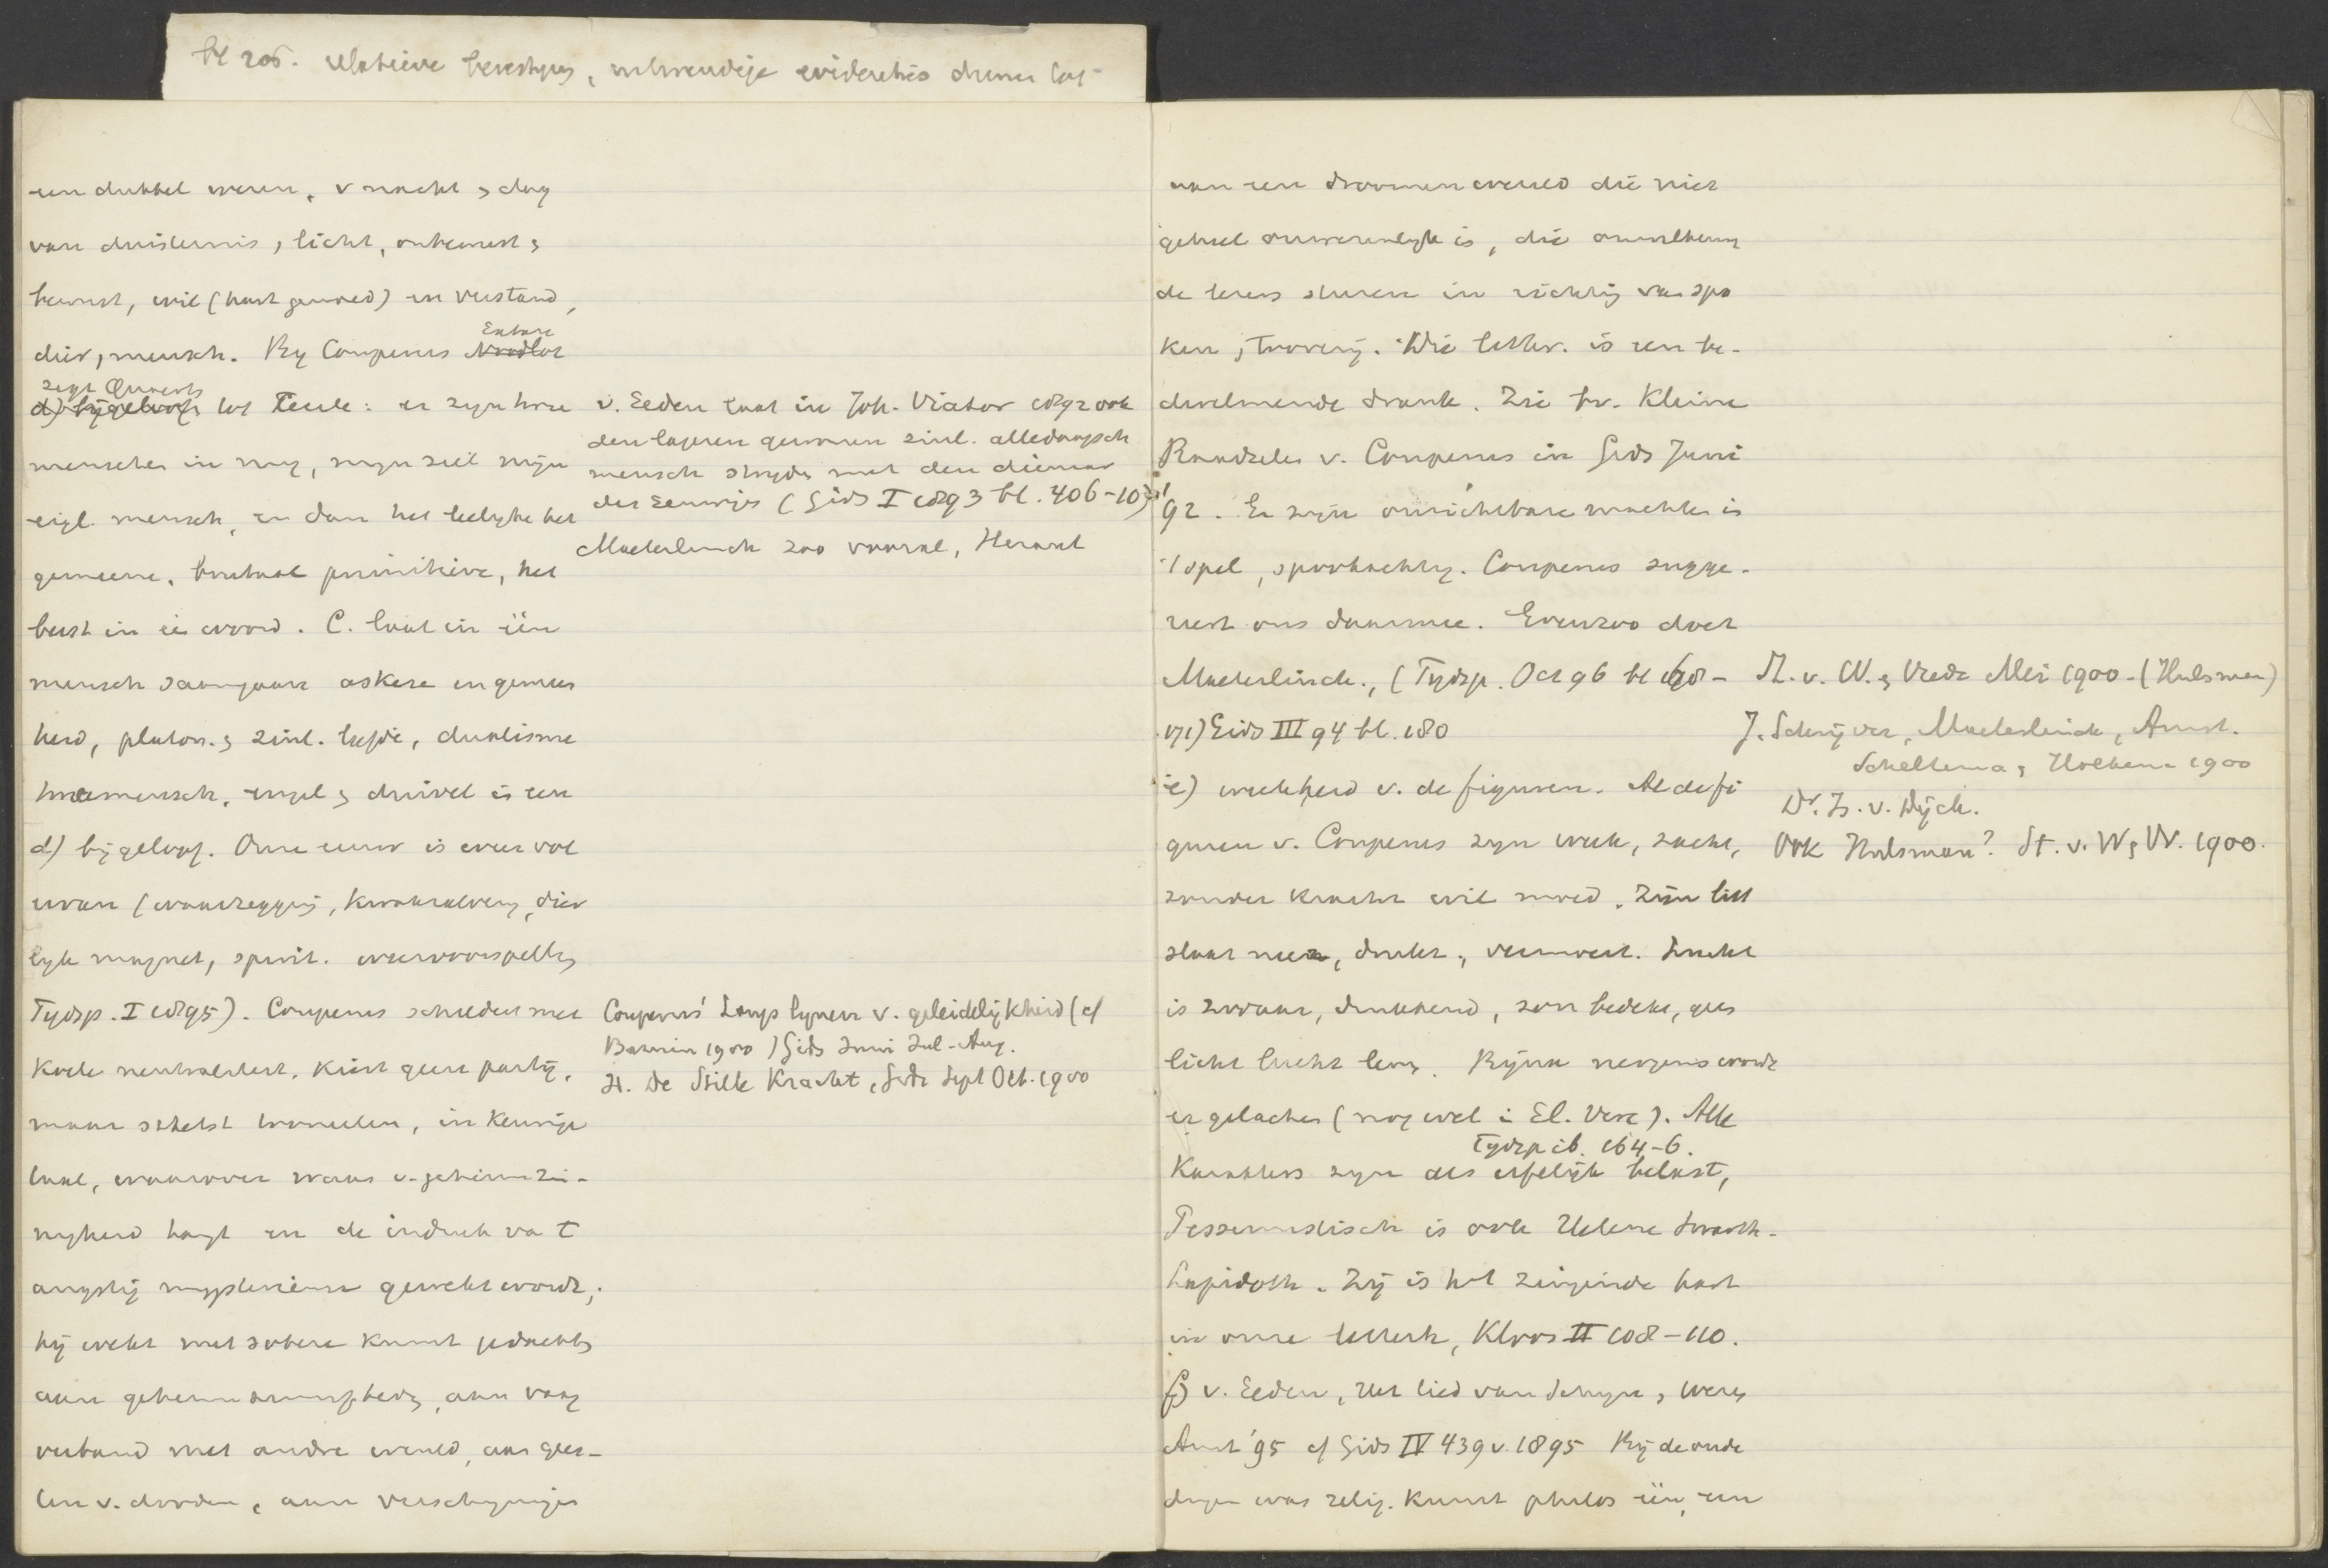 bl 205.
een dubbel wezen, v nacht & dag
van duisternis, licht, onbewust &
bewust, wil (hart gemoed) en verstand,
dier, mensch. By Couperus Extaze
zegt Quaerts tot Cecile: er zyn twee
menschen in my, myn ziel mijn
eigl. mensch, en dan het leelyke het
gemeene, brutaal primitieve, het
beest in éé woord. C. laat in één
mensch saamgaan askese en gemeen
heid, platon. & zinl. liefde, dualisme
mensch, engel & duivel is een
v. Eeden laat in Joh. Viator 1892 ook
den lageren gewonen zinl. alledaagsch
mensch stryden met den dienaar
des eeuwigs (Gids I 1893 bl. 406-10)
Maeterlinck zoo vooral,
d) bijgeloof. Onze eeuw is weer vol
ervan (waarzeggerij, kwakzalvery, dier
lyk magnet, spirit. weervoorspellg
Tydsp. I 1895). Couperus schildert met
koele neutraliteit, kiest geen partij,
maar schetst tooneelen, in keurige
taal, waarover waas v. geheimzin-
nigheid hangt en de indruk va t
angstig mysterieuse gewekt wordt;
hij wekt met sobere kunst gedachte
aan geheim, aan vaag
verband met andre wereld, aan gees-
ten v. dooden, aan verschyningen
Couperus' Langs lynen v. geleidelijkheid (cf
1900) Gids Juni Jul-Aug.
De Stille Kracht, Gids Sept Oct. 1900
aan een droomenwereld die niet
geheel onwezenlyk is, die
de lezers sturen in richting van spo
ken, tovery. Die letter. is een be-
dwelmende drank. Zie bv. Kleine
Raadselen v. Couperus in Gids Juni
'92. Er zyn onzichtbare machten in
't spel, spookachtig. Couperus sugge-
reert ons daarmee. Evenzoo doet
Maeterlinck., (Tydsp. Oct 96 bl 168-
171) Gids III 94 bl. 180
St. v. W. & Vrede Mei 1900 - (Hulsman)
J. Schrijver, Maeterlinck, Amst.
Scheltema & Holkema 1900
Dr. Is. v. Dijck.
Ook Hulsman? St. v. W & V. 1900.
e) weekheid v. de figuren. Al de fi
guren v. Couperus zyn week, zacht,
zonder kracht wil moed. Zijn litt
slaat neer, drukt, vermoeit. Lucht
is zwaar, drukkend, zon bedekt, geen
licht lucht leven. Byna nergens wordt
er gelachen (nog wel i El. Vere). Alle
Tydsp ib. 164-6.
karakters zyn als erfelijk belast,
Pessimistisch is ook Helene Swarth-
Lapidoth. Zij is het zingende hart
in onze letterk, Kloos II 108-110.
f) v. Eeden, Het lied van Schyn & Wezen
Amst '95 cf Gids IV 439 v. 1895 Bij de oude
dagen was relig. kunst philos één, een